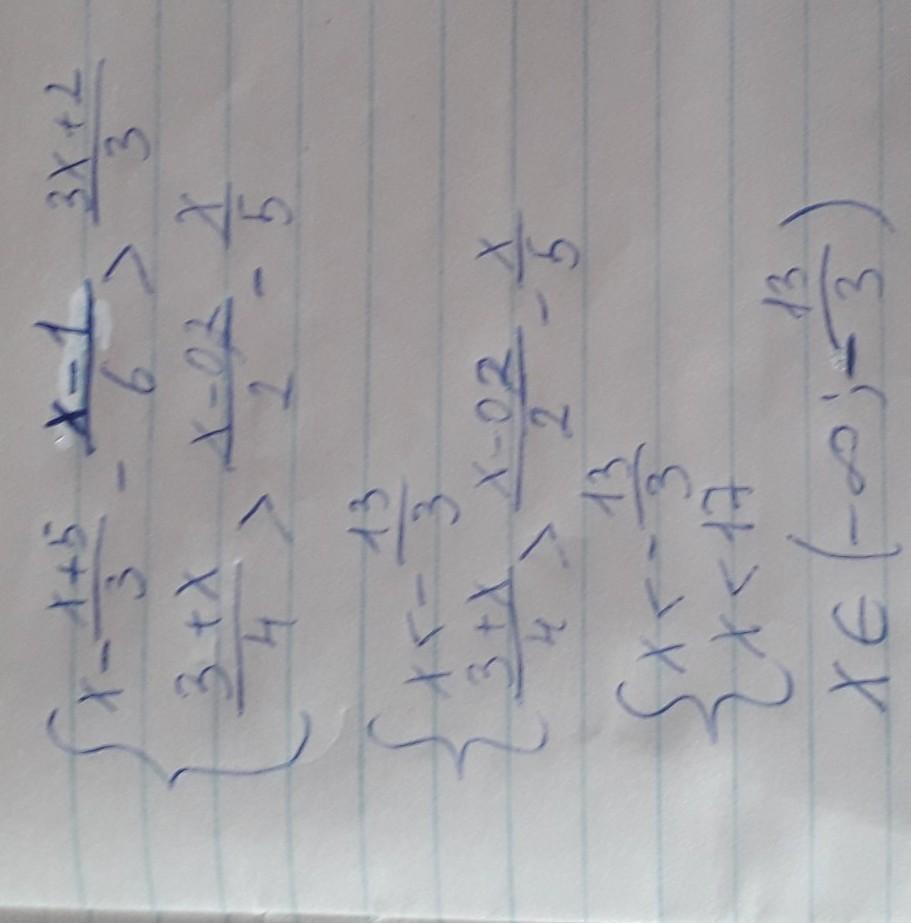 { x - \frac{x+5}{3} - \frac{x-1}{6} > \frac{3x+2}{3}
\frac{3+x}{4} > \frac{x-0,2}{2} - \frac{x}{5}
{ x < - \frac{13}{3}
\frac{3+x}{4} > \frac{x-02}{2} - \frac{x}{5}
{ x < - \frac{13}{3}
x < 17
x ∈ (-∞; -\frac{13}{3})